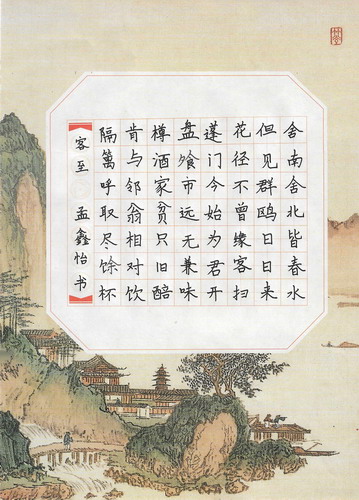 舍南舍北皆春水
但见群鸥日日来
花径不曾缘客扫
蓬门今始为君开
盘飧市远无兼味
樽酒家贫只旧醅
肯与邻翁相对饮
隔篱呼取尽馀杯
客至 孟鑫怡书